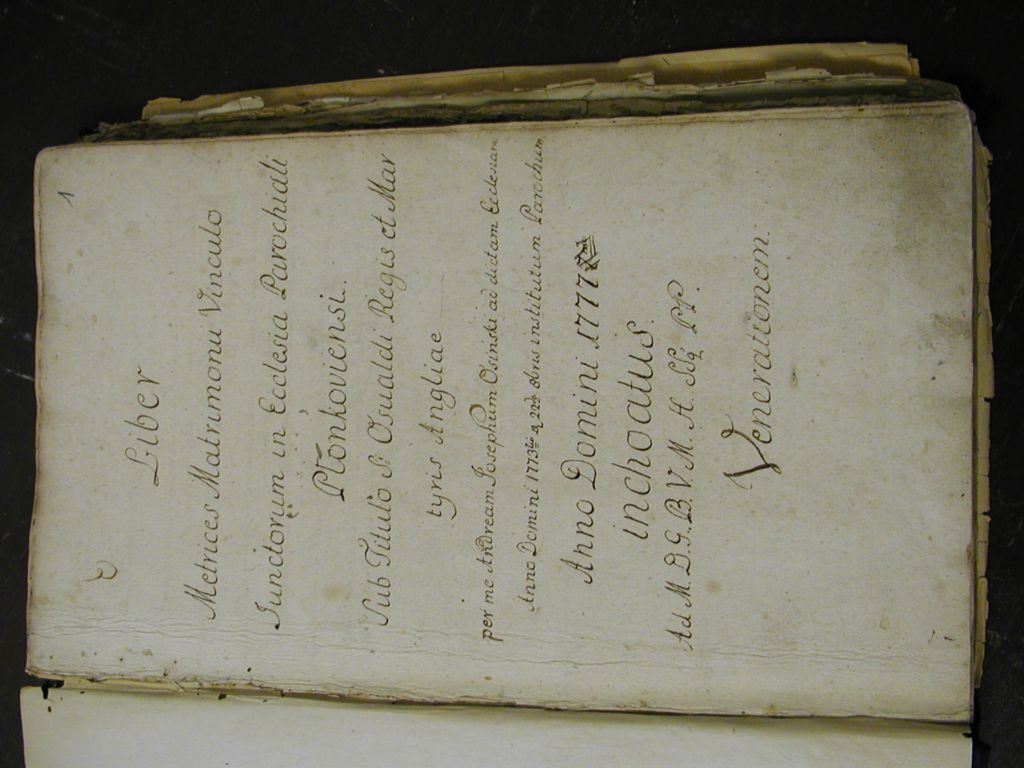 1
Liber
Metrices Matrimonii Vinculo
Iunctorum in Ecclesia Parochiali
Płonkoviensi.
Sub Titulo Sti Osualdi Regis et Mar
tyris Angliae
per me Andream Josephum Osinski ad dictam Ecclesiam
Anno Domini 1773tio a 22da 8bris institutum Parochum
Anno Domini 1777
inchoatus.
Ad M. D. G. B. V. M. H. SSq PP.
Venerationem.